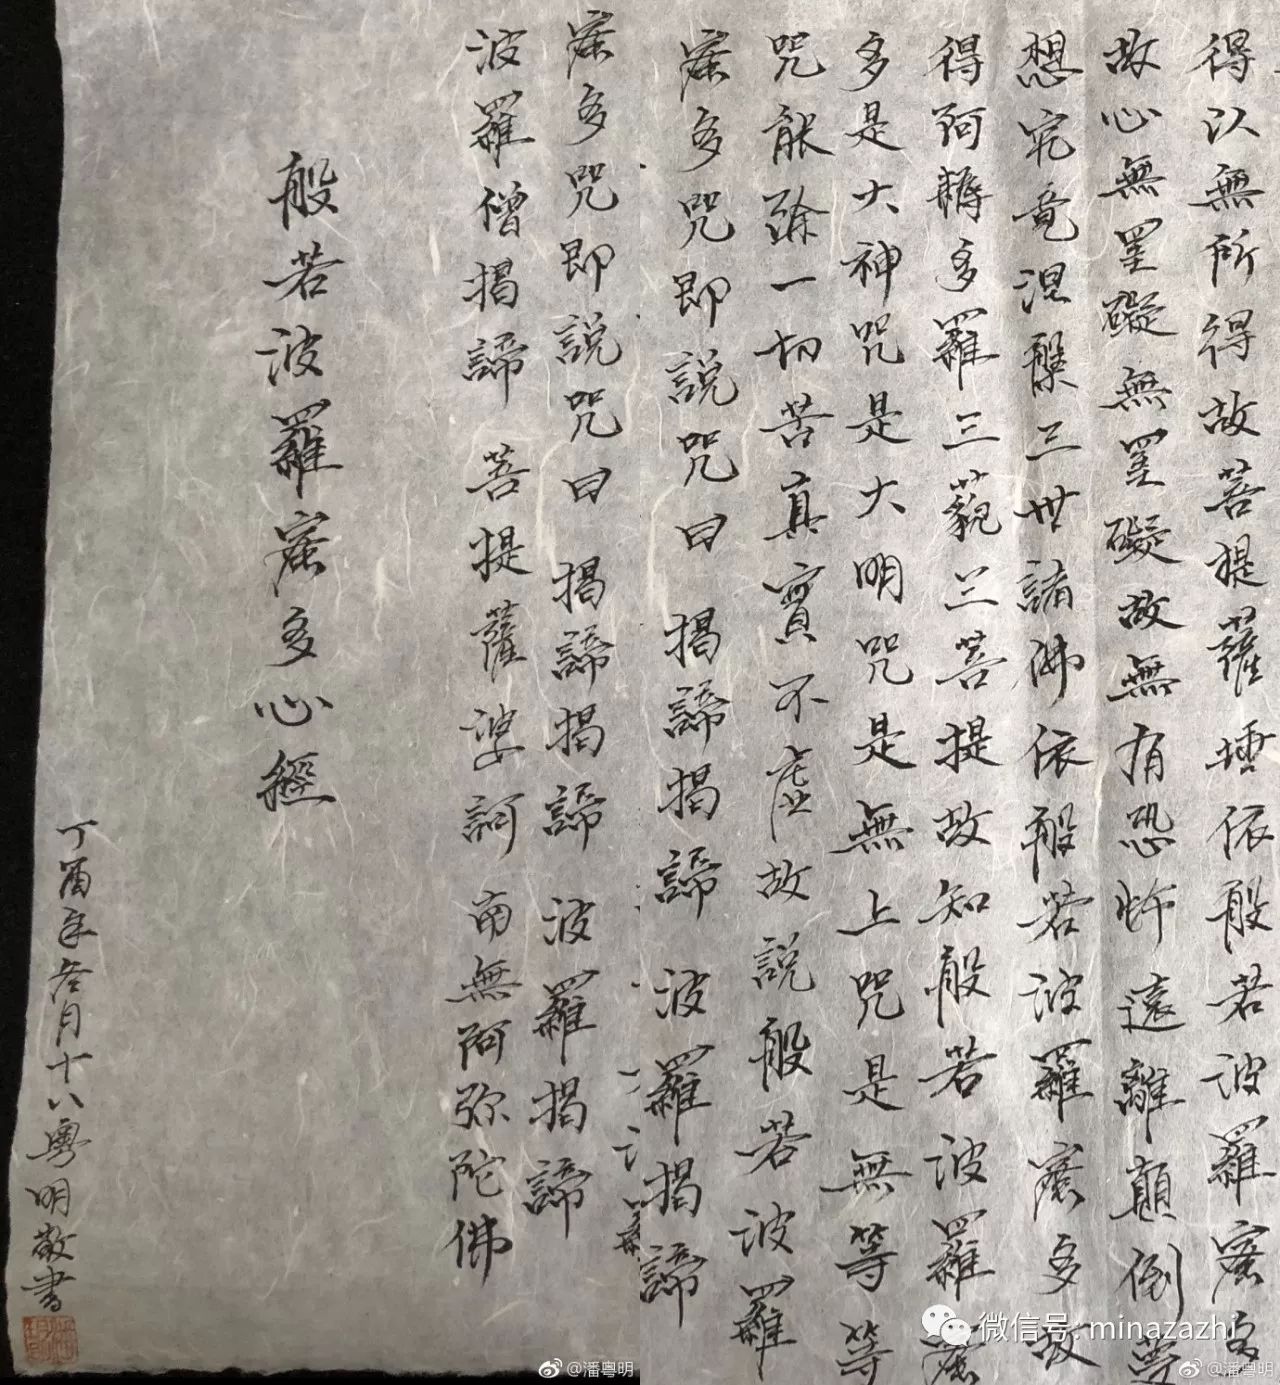 得以無所得故菩提薩埵依般若波羅蜜多
故心無罣礙無罣礙故無有恐怖遠離顛倒夢
想究竟涅槃三世諸佛依般若波羅蜜多故
得阿耨多羅三藐三菩提故知般若波羅蜜
多是大神咒是大明咒是無上咒是無等等
咒能除一切苦真實不虛故說般若波羅
蜜多咒即說咒曰 揭諦揭諦 波羅揭諦
蜜多咒即說咒曰 揭諦揭諦 波羅揭諦
波羅僧揭諦 菩提薩婆訶 南無阿弥陀佛
般若波羅蜜多心經
丁酉年冬月十八粵明敬書
@潘粤明
微信号: minazazhi
@潘粤明